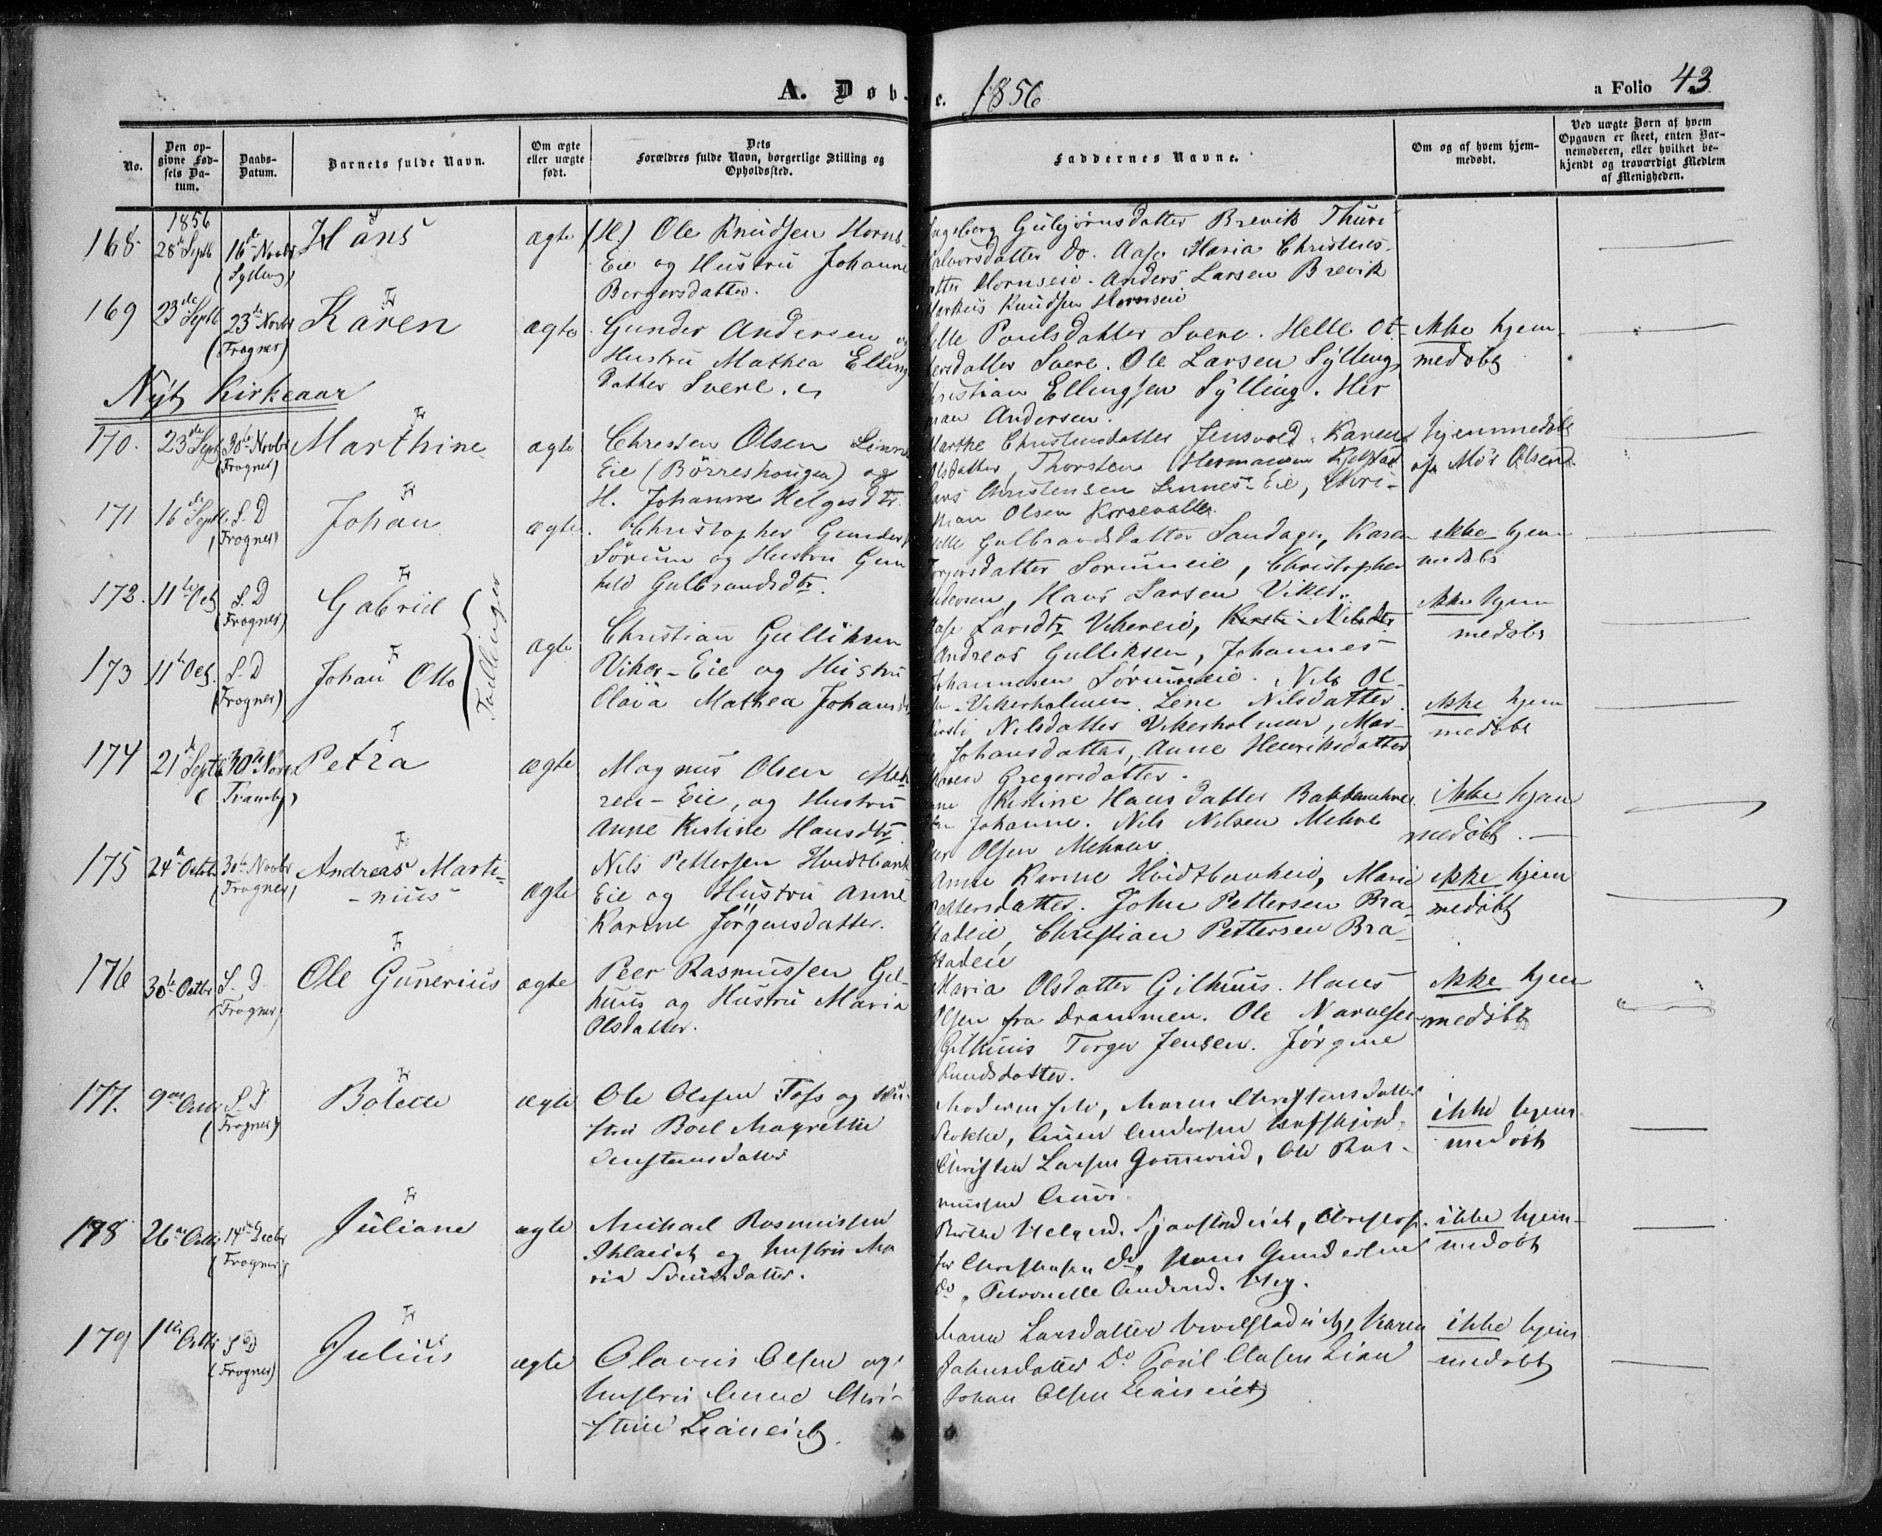 A. Døb e. 1856 a Folio 43
No.
Den opgivne Fødsels Datum.
Daabs-Datum.
Barnets fulde Navn.
Om ægte eller uægte født.
Dets Forældres fulde Navn, borgerlige Stilling og Opholdssted.
Faddernes Navne.
Om og af hvem hjemmedøbt.
Ved uægte Børn af hvem Opgaven er skeet, enten Barnemoderen, eller hvilket bekjendt og troværdigt Medlem af Menigheden.
1856
168 28de Septb 16de Novbr (Sylling) Hans ægte (H) Ole Knudsen Horns-
Eie og Hustru Johanne
Borgersdatter.
Ingeborg Gulbjørnsdatter Brevik Thuri
Halvorsdatter Do. Aase Maria Christens-
datter Hornseie. Anders Larsen Brevik
Markus Knudsen Hornseie
169 23de Septb 23de Novbr (Frogner) Karen ægte Gunder Andersen og
Hustru Mathea Elling
datter Svere.
Helle Poulsdatter Svere. Helle Ot-
tersdatter Svere. Ole Larsen Sylling,
Christian Ellingsen Sylling. Her
man Andersen.
ikke hjem-
medøbt
Nyt Kirkeaar
170. 23de Septb 30te Novbr (Frogner) Marthine ægte Christen Olsen Linnes
Eie (Börreshougen) og
H. Johanne Helgesdtr.
Marthe Christensdatter Jensvold. Karen
Olsdatter, Thorsten Hermansen Kjelstad
Lars Christensen Linnes-Eie, Chri-
stian Olsen Korsevalle
hjemmedøbt
af Mos Olsen
171 16de Septb S. D (Frogner) Johan ægte Christopher Gunders
Sørum og Hustru Gun
hild Gulbrandsdtr.
Helle Gulbrandsdatter Sandager, Karen
Torgersdatter Sorumeie, Christopher
Andersen, Hans Larsen Viker.
ikke hjem
medøbt
172. 11te Oct S. D (Frogner) Gabriel
173 11te Oct. S. D (Frogner) Johan Otto
Tvillinger
ægte Christian Gulliksen
Viker-Eie og Hustru
Olava Mathea Johansd
Aase Larsdtr Vikereie, Kirsti Nilsdtr
Andreas Gulliksen, Johannes
Johannesen Sørumeie. Nils Ol-
sen Vikerholmen. Lene Nilsdatter
Kirsti Nilsdatter Vikerholmen, Mar-
Johansdatter, Anne Henriksdatter
Maren Gregersdatter.
ikke hjem
medøbt
ikke hjem
medøbt
174 21de Septb 30te Novbr (Tranby) Petra ægte Magnus Olsen Meh
ren-Eie, og Hustru
Anne Kistine Hansdtr
Anne Kistine Hansdatter Bakkenehre
Johanne. Nils Nilsen Mehre
Peer Olsen Mehren
ikke hjem
medøbt.
175 24de Octbr 30te Novbr (Frogner) Andreas Marti-
-nius- ægte Nils Pettersen Hvidtbank
Eie og Hustru Anne
Karine Jörgensdatter.
Anne Karine Hvidtbankeie, Marie
Pettersdatter. John Pettersen Bra-
stadeie, Christian Pettersen Bra-
stadeie
ikke hjem
medøbt
176 30te Octbr S. D. (Frogner) Ole Gunerius ægte Peer Rasmussen Gil-
huus og Hustru Maria
Olsdatter.
Maria Olsdatter Gilhuus. Hans
Olsen fra Drammen. Ole Narvesen
Gilhuus Torger Jensen. Jørgine
Knudsdatter.
ikke hjem
medøbt
177. 9de Octbr S. D (Frogner) Bolette ægte Ole Olsen Foss og Hu-
stru Boel Magrethe
Christensdatter
Moderen selv, Maren Christensdatter
Stokke, Anen Andersen Ursfkjød,
Christen Larsen Gommerud, Ole Ras-
mussen Huus.
ikke hjem-
medøbt
178 26de Octbr 14de Decbr (Frogner) Juliane ægte Michael Rasmussen
og Hustru Ma
ria Svendsdatter.
Berthe Helgesd. Sjaastadeiet, Christof-
fer Christensen Do, Hans Gundersen
Do, Petronelle Andersd.
ikke hjem-
medøbt
179 1ste Octbr S D (Frogner) Julius ægte Olavus Olsen og
Hustru Anne Chri-
stine Lianeiet.
Maria Larsdatter Uvelstadeiet, Karen
Johnsdatter Do. Paul Olsen Lian
Johan Olsen Lianeiet
ikke hjem
medøbt